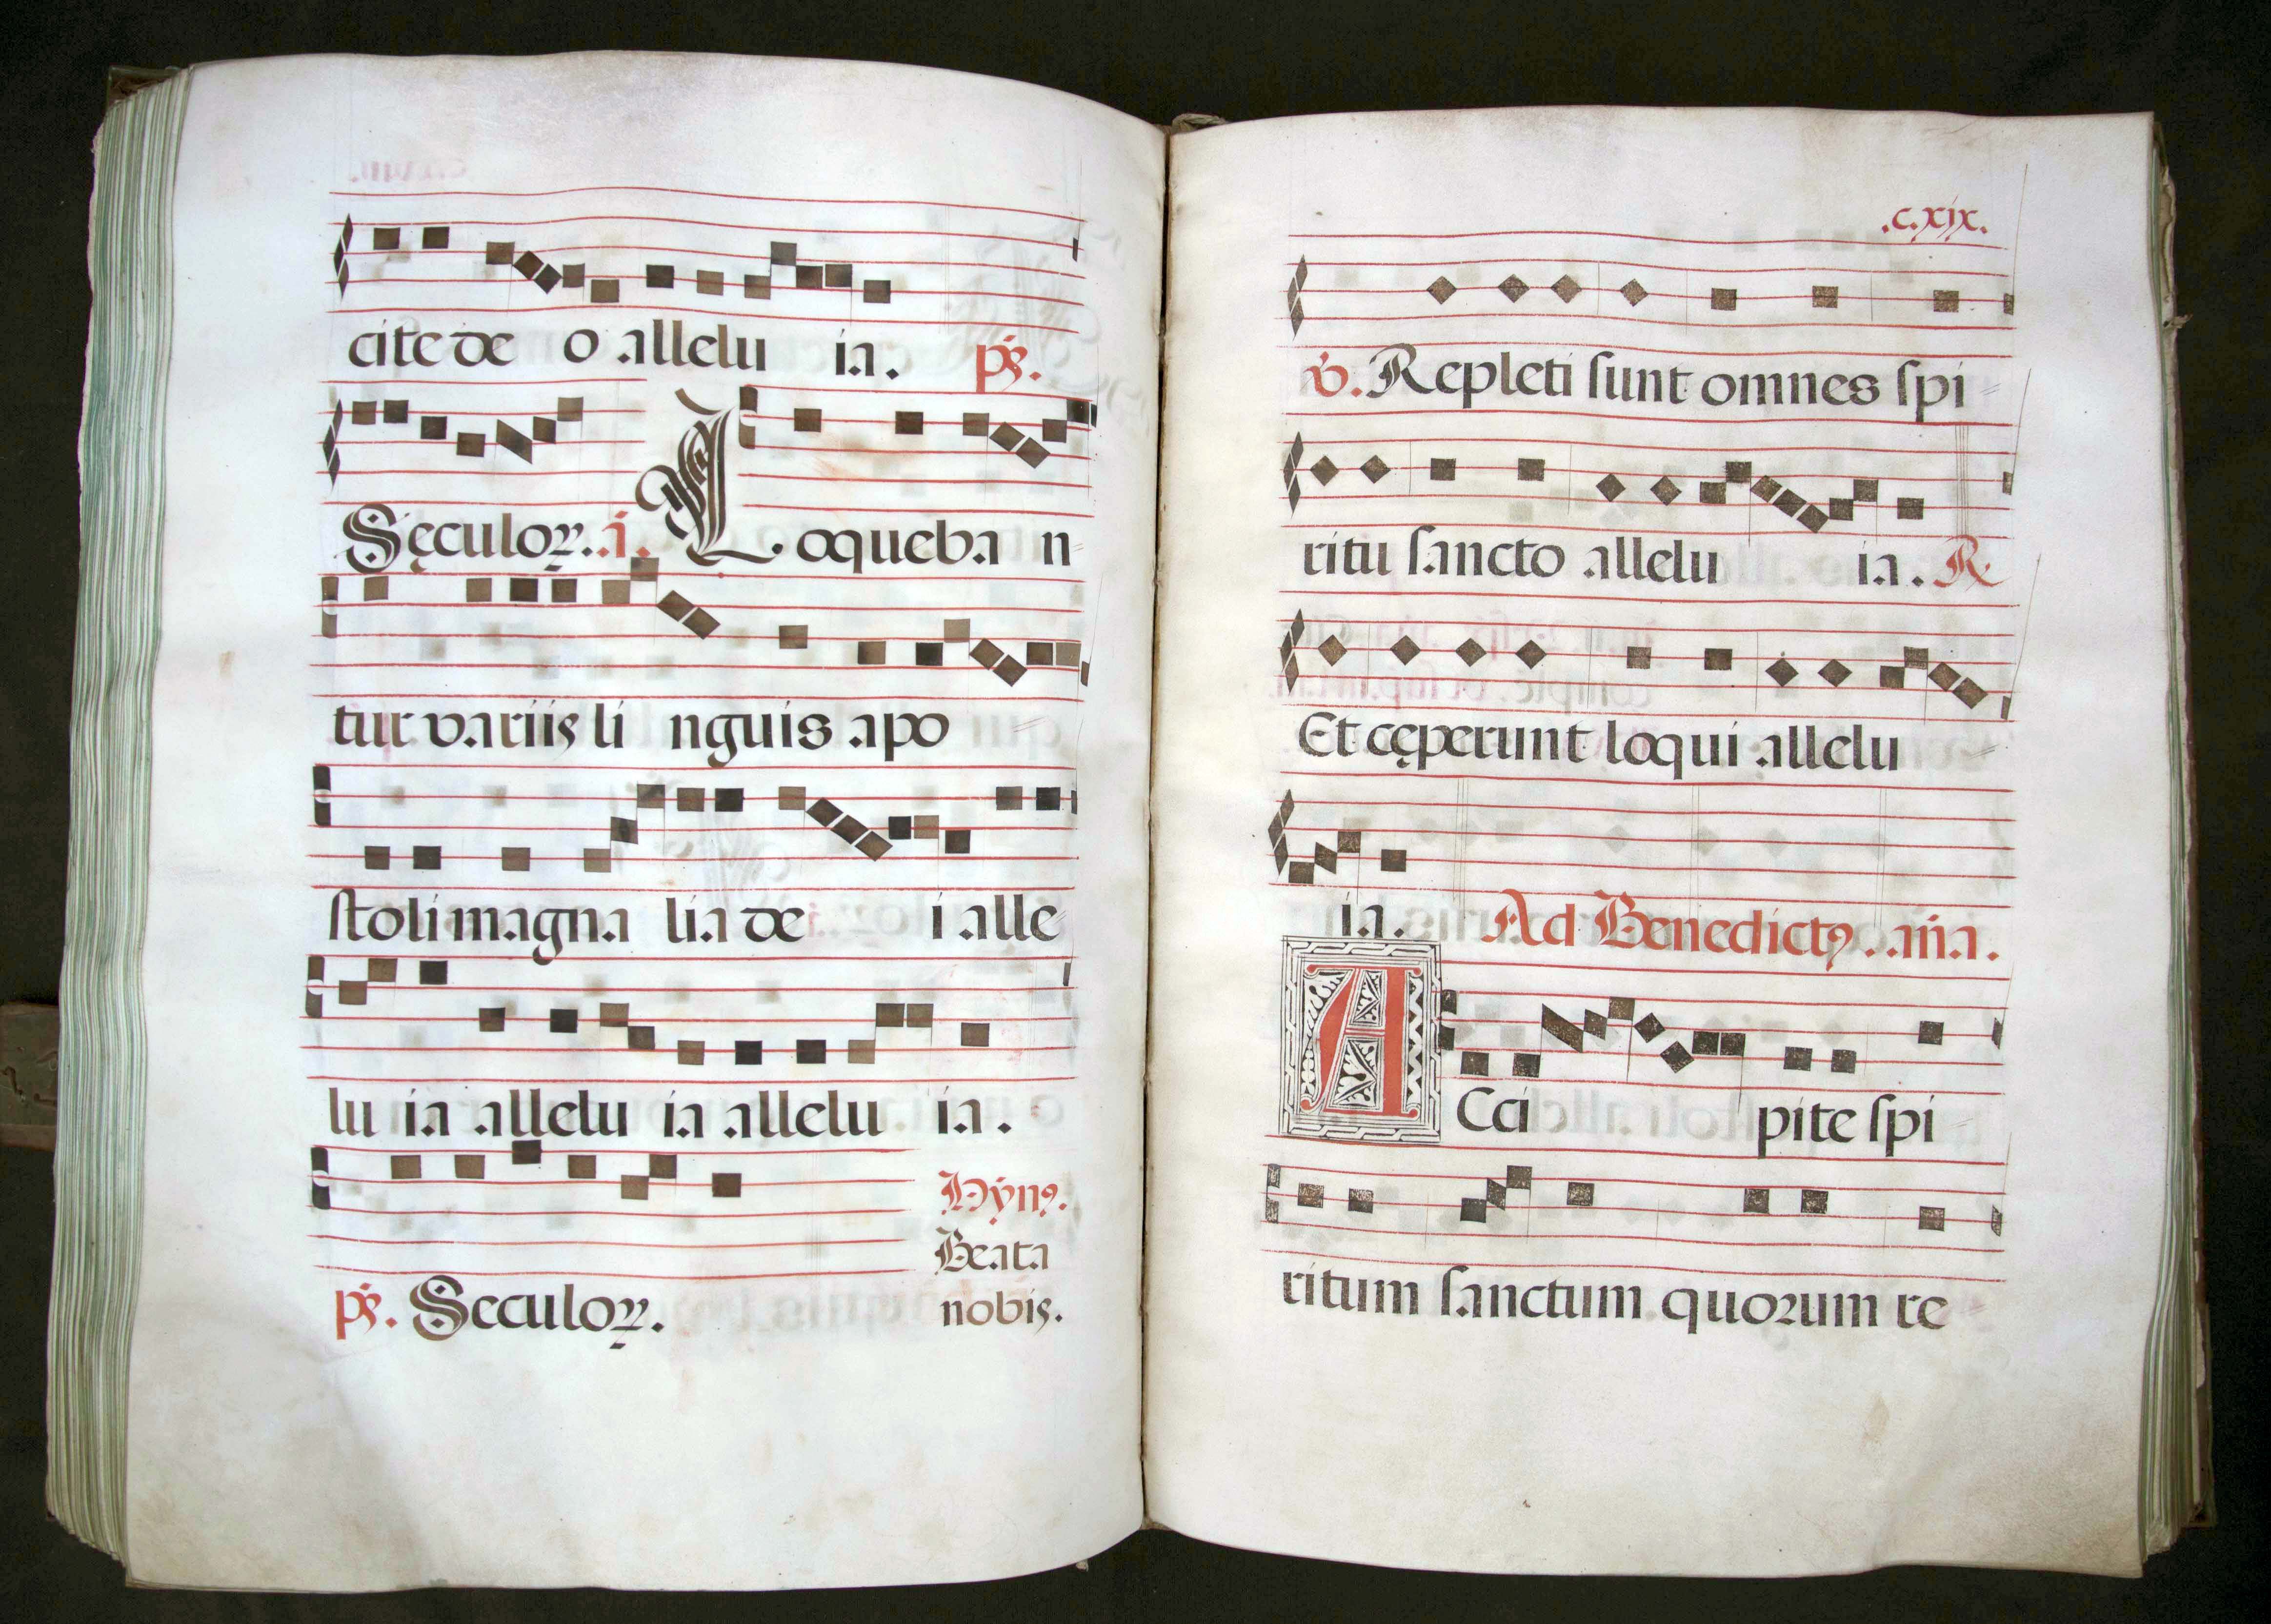 cite de o allelu ia. ps.
Sęculoꝝ. .i. Loqueba n
tur variis li nguis apo
stoli magna lia de i alle
lu ia allelu ia allelu ia.
Hyn⁹.
Beata
ps. Seculoꝝ. nobis.
.c.xix.
v. Repleti sunt omnes spi
ritu sancto allelu ia. R
Et cęperunt loqui allelu
ia. Ad Benedict⁹. .an̄a.
A Cci pite spi
ritum sanctum quorum re